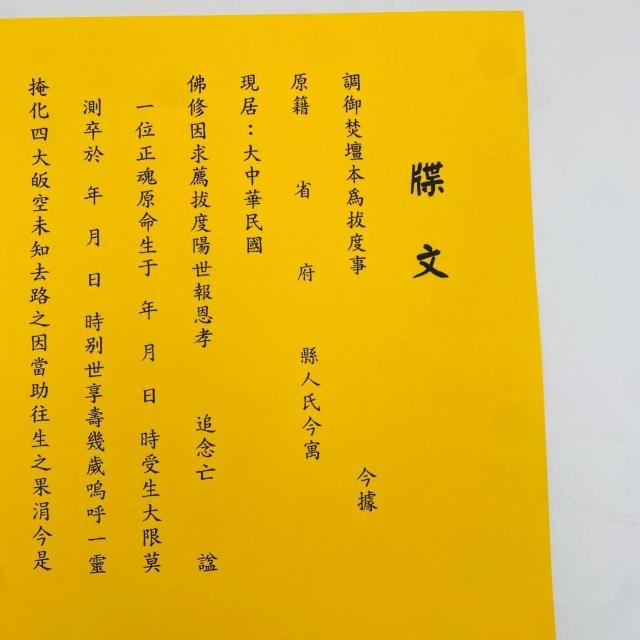 牒文
調御焚壇本爲拔度事 今據
原籍 省 府 縣人氏今寓
現居：大中華民國
佛修因求薦拔度陽世報恩孝 追念亡 諡
一位正魂原命生于 年 月 日 時受生大限莫
測卒於 年 月 日 時别世享壽幾歲嗚呼一靈
掩化四大皈空未知去路之因當助往生之果涓今是